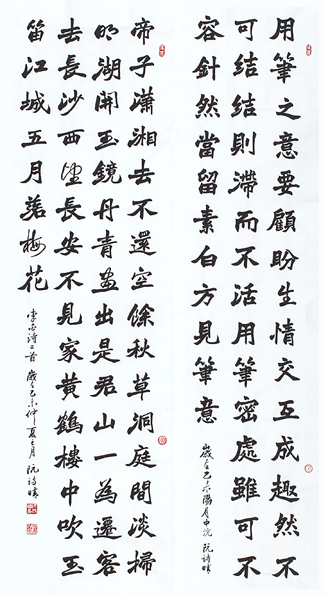 用筆之意要顧盼生情交互成趣然不
可結結則滯而不活用筆密處雖可不
容針然當留素白方見筆意
歲在 陽月中浣 阮詩
帝子瀟湘去不還空餘秋草洞庭間淡掃
明湖開玉鏡丹青畫出是君山一為遷客
去長沙西望長安不見家黃鶴樓中吹玉
笛江城五月落梅花
李白詩二首 歲在 未仲夏之月 阮詩